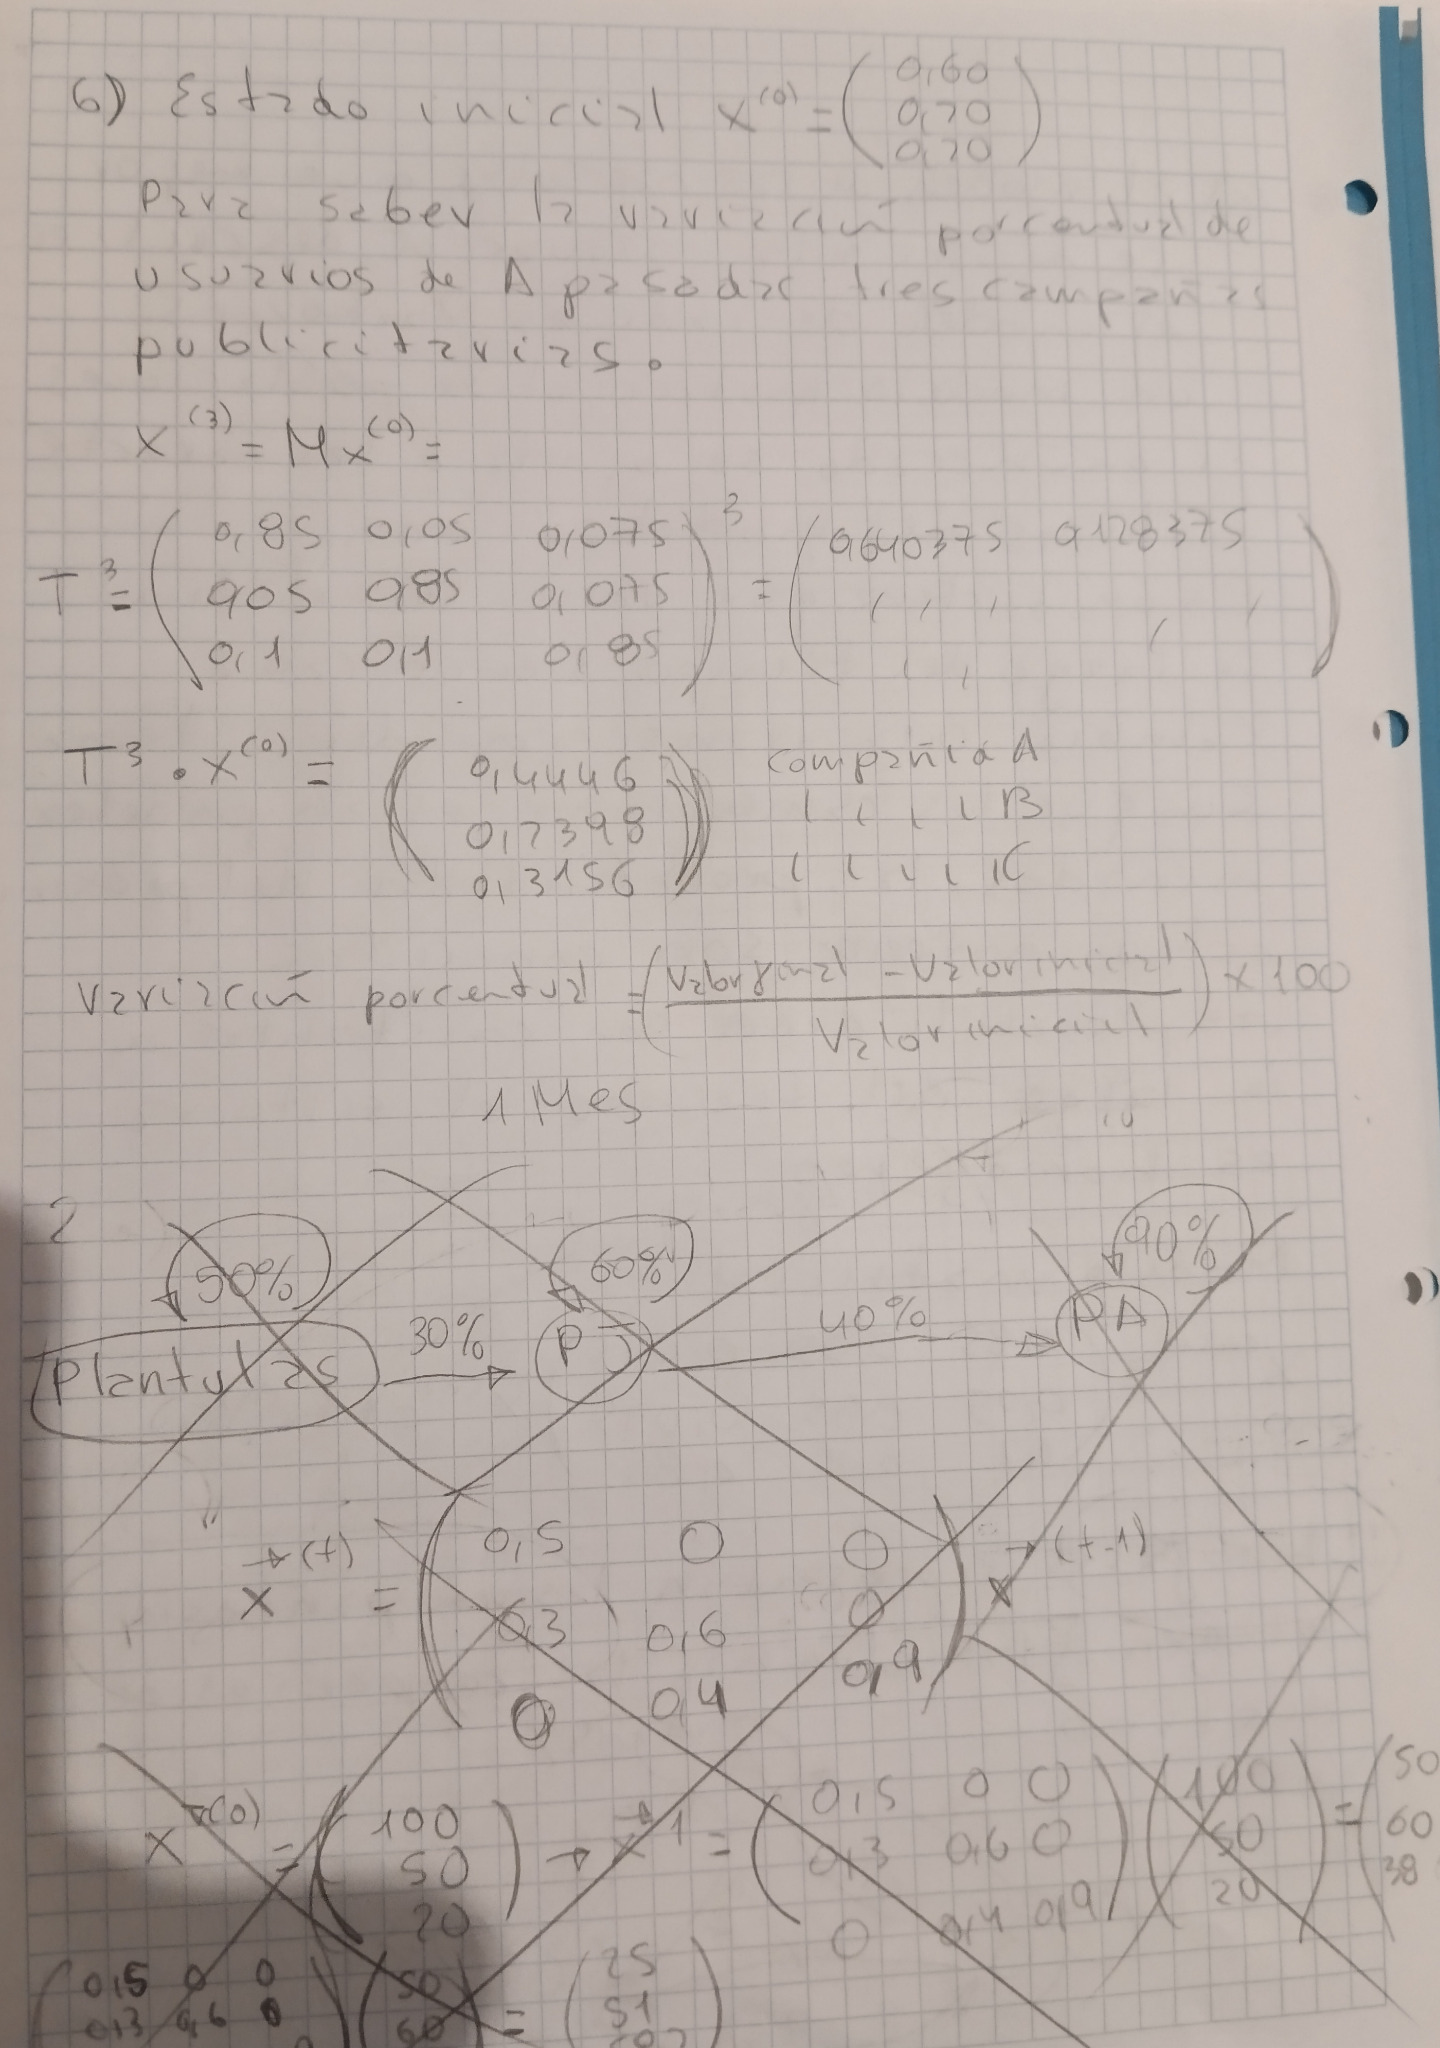 6) Estado inicial x⁽⁰⁾ = (0,60
0,20
0,20)
Para saber la variación porcentual de
usuarios de A pasadas tres campañas
publicitarias.
x⁽³⁾ = M x⁽⁰⁾ =
T³ = (0,85 0,05 0,075
0,05 0,85 0,075
0,1 0,1 0,85)³ = (0,640375 0,128375
T³ · x⁽⁰⁾ = (0,4446
0,2398
0,3156) compañia A
B
C
Variación porcentual = (Valor final - Valor inicial / Valor inicial) × 100
1 Mes
2
50% 60% 90%
Plantulas 30% PJ 40% PA
x⁽ᵗ⁾ = (0,5 0 0
0,3 0,6 0
0 0,4 0,9) x⁽ᵗ⁻¹⁾
x⁽⁰⁾ = (100
50
20) → x¹ = (0,5 0 0
0,3 0,6 0
0 0,4 0,9) (100
50
20) = (50
60
38
(0,5 0 0
0,3 0,6 0 (50
60 = (25
51